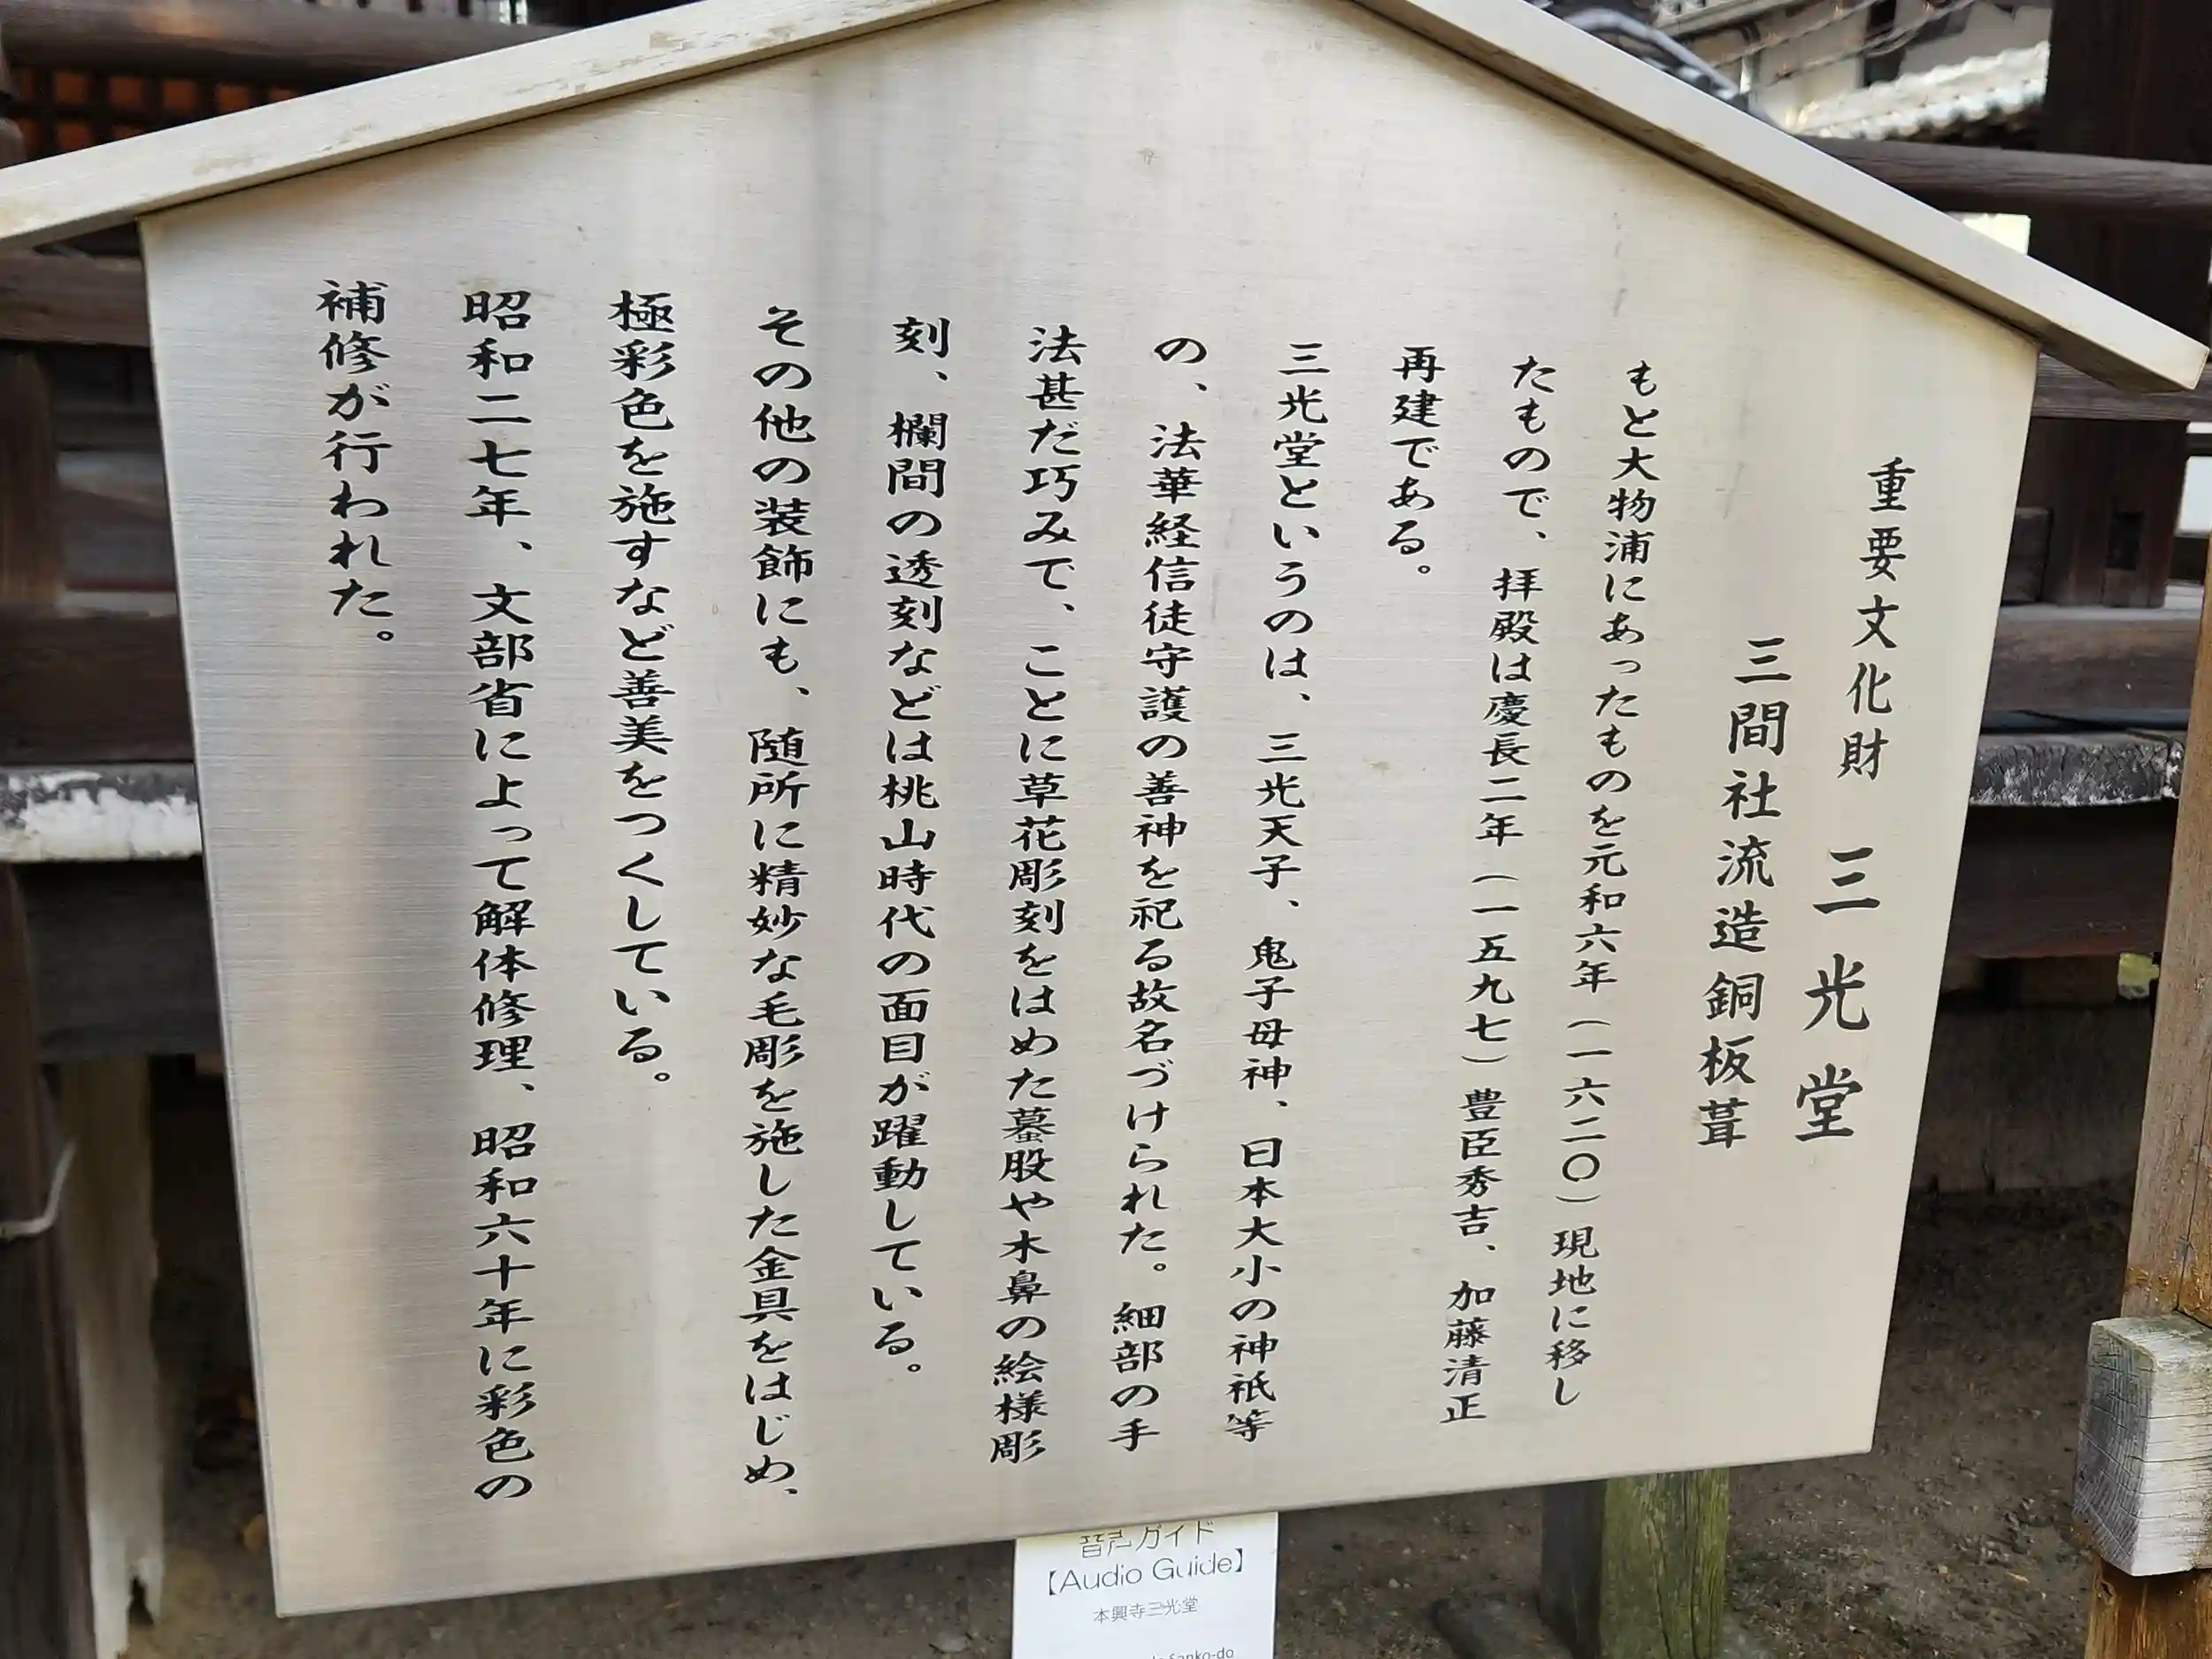 重要文化財 三光堂
三間社流造銅板葺
もと大物浦にあったものを元和六年(一六二〇)現地に移し
たもので、拝殿は慶長二年(一五九七)豊臣秀吉、加藤清正
再建である。
三光堂というのは、三光天子、鬼子母神、日本大小の神祇等
の、法華経信徒守護の善神を祀る故名づけられた。細部の手
法甚だ巧みで、ことに草花彫刻をはめた蟇股や木鼻の絵様彫
刻、欄間の透刻などは桃山時代の面目が躍動している。
その他の装飾にも、随所に精妙な毛彫を施した金具をはじめ、
極彩色を施すなど善美をつくしている。
昭和二七年、文部省によって解体修理、昭和六十年に彩色の
補修が行われた。
音声ガイド
【Audio Guide】
本興寺三光堂
Sanko-do